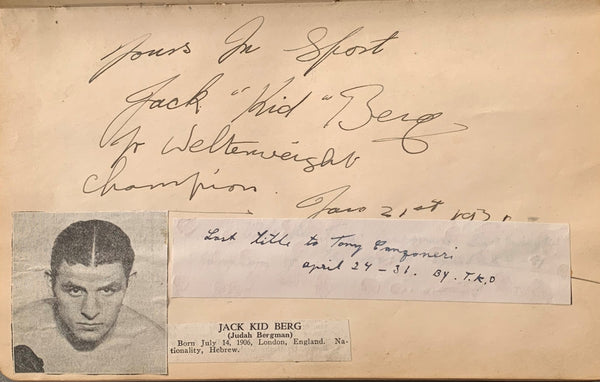 Yours In Sport
Jack "Kid" Berg
Jr Welterweight
Champion.
Jan 21st
Lost title to Tony Canzoneri
april 24-31. BY. T.K.O
JACK KID BERG
(Judah Bergman)
Born July 14, 1906, London, England. Na-
tionality, Hebrew.